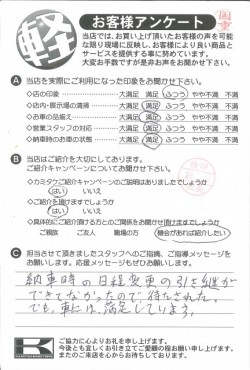 軽
お客様アンケート
当店では、お買い上げ頂いたお客様の声を可能
な限り現場に反映し、お客様により良い商品と
サービスを提供する事に努めています。
大変お手数ですが是非お声をお聞かせ下さい。
A 当店を実際にご利用になった印象をお聞かせ下さい。
◇店の印象 大満足 満足 ふつう やや不満 不満
◇店内・展示場の清掃 大満足 満足 ふつう やや不満 不満
◇お車の品揃え 大満足 満足 ふつう やや不満 不満
◇営業スタッフの対応 大満足 満足 ふつう やや不満 不満
◇納車時のお車の状態 大満足 満足 ふつう やや不満 不満
B 当店はご紹介を大切にしております。
ご紹介キャンペーンについてお聞かせ下さい。
◇カミタケご紹介キャンペーンのご説明はありましたでしょうか
はい いいえ
◇ご紹介を頂けますでしょうか
はい いいえ
◇具体的にご紹介頂ける方との関係をお聞かせ頂けますでしょうか
ご親族 ご友人 職場の方 機会があれば紹介したい
C 担当させて頂きましたスタッフへのご指摘、ご指導メッセージを
お願いします。応援メッセージもぜひお願いします。
納車時の日程変更の引き継が
できてなかったので待たされた。
でも、車には、満足しています。
ご協力に心よりお礼を申し上げます。
今後とも宜しくお引き立てご愛顧の程お願い申し上げます。
またのご来店を心からお待ちしております。